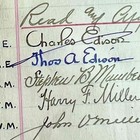 Read and Ap
E. Charles Edison
E. Thos A Edison
Stephen B
M. Harry F. Miller
John